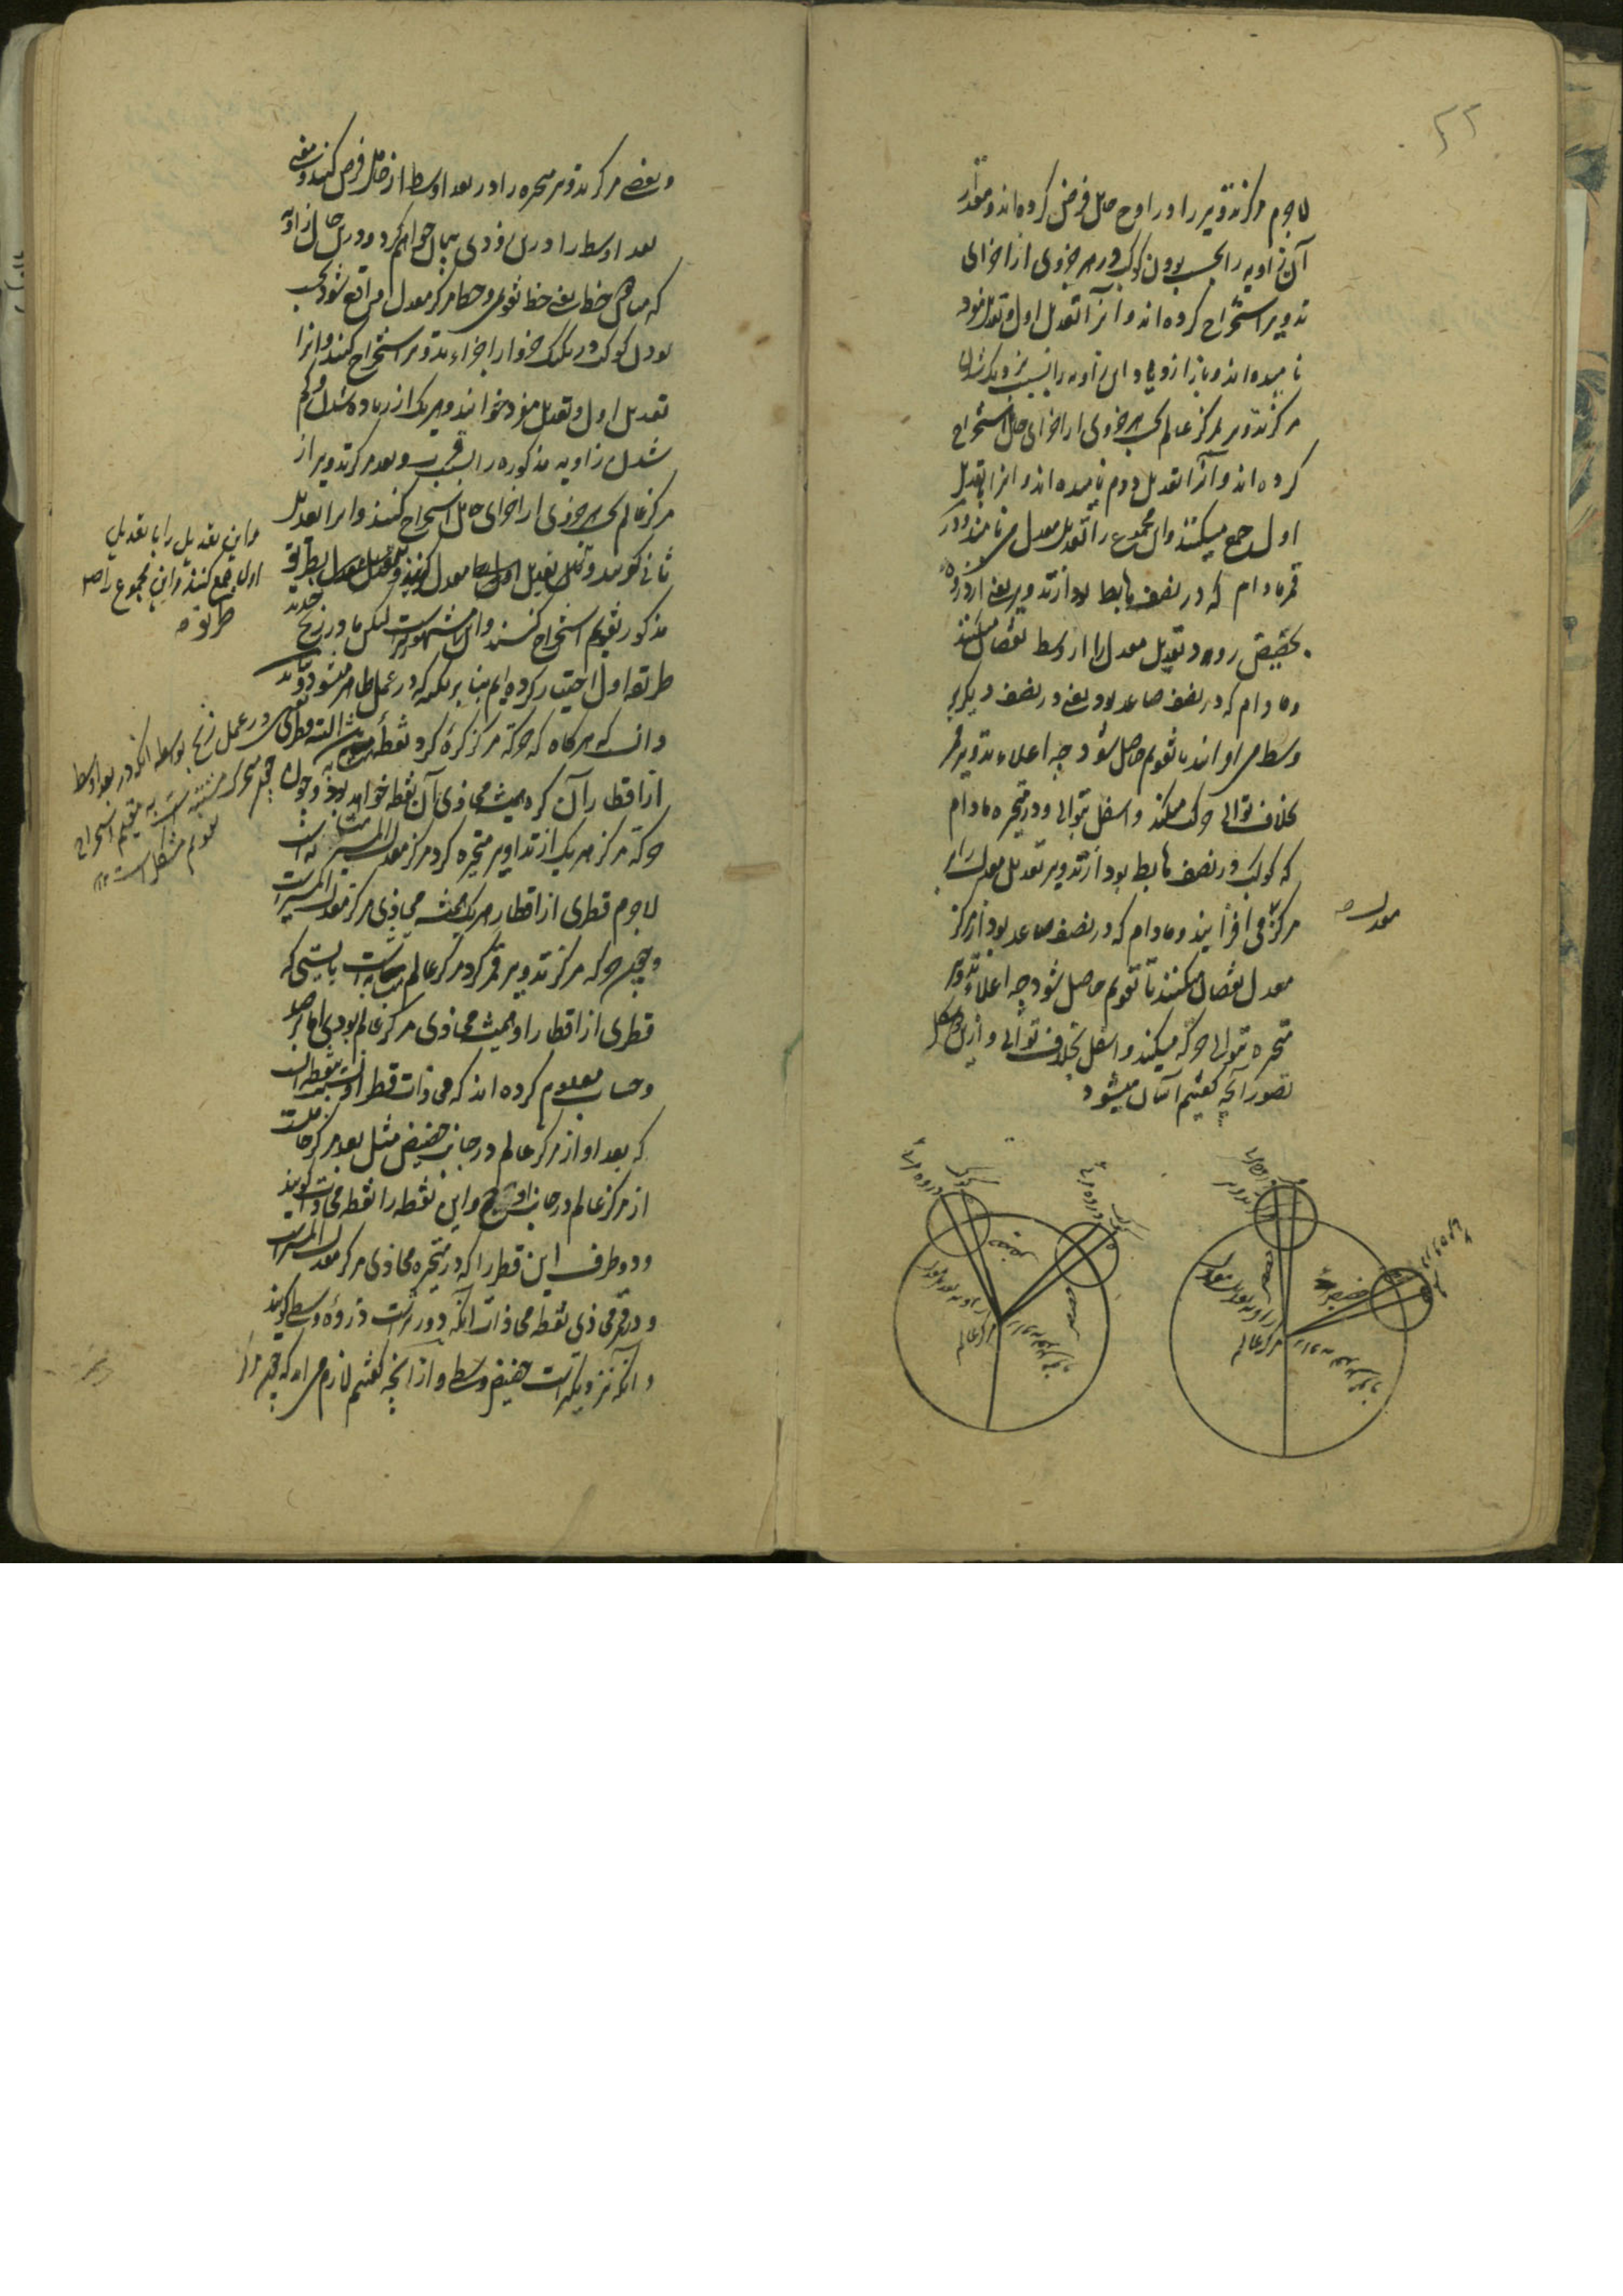 ۲۲
لاجرم مرکز تدویر را در اوج حامل فرض کرده‌اند و مقدار
آن زاویه را بحسب بودن کوکب در هر جزوی از اجزای
تدویر استخراج کرده‌اند و آنرا تعدیل اول و تعدیل مفرد
نامیده‌اند و باز ازدیاد این زاویه را بسبب نزدیک شدن
مرکز تدویر بمرکز عالم بحسب هر جزوی از اجزای حامل استخراج
کرده‌اند و آنرا تعدیل دوم نامیده‌اند و آنرا با تعدیل
اول جمع میکنند و این مجموع را تعدیل معدل می‌نامند و در
قمر مادام که در نصف هابط بود از تدویر یعنی از ذروه
بحضیض رود تعدیل معدل را از وسط نقصان میکنند
و مادام که در نصف صاعد بود یعنی در نصف دیگر بر
وسط می‌افزایند تا تقویم حاصل شود چه اعلاء تدویر قمر
بخلاف توالی حرکت میکند و اسفل بتوالی و در متحیره مادام
که کوکب در نصف هابط بود از تدویر تعدیل معدل را بر
مرکز می‌افزایند و مادام که در نصف صاعد بود از مرکز
معدل
معدل نقصان میکنند تا تقویم حاصل شود چه اعلاء تدویر
متحیره بتوالی حرکة میکند و اسفل بخلاف توالی و ازین شکل
تصور آنچه گفتیم آسان میشود
مرکز عالم
مرکز عالم
و بعضی مرکز تدویر متحیره را در بعد اوسط از حامل فرض کنند و معنی
بعد اوسط را درین زودی بیان خواهیم کرد و درین حال زاویه
که میان خطین یعنی خط تقویمی و خط مرکز معدل واقع شود بحسب
بودن کوکب در یک یک جزو از اجزاء تدویر استخراج کنند و آنرا
تعدیل اول و تعدیل مفرد خوانند و هر یک از زیاده شدن و کم
شدن زاویه مذکوره را بسبب قرب و بعد مرکز تدویر از
مرکز عالم بحسب هر جزوی از اجزای حامل استخراج کنند و آنرا تعدیل
ثانی گویند و بطریق
مذکور تقویم استخراج کنند و این مشهورتر است لیکن ما در زیج جدید
طریقه اول اختیار کرده‌ایم بنا بر نکته که در عمل ظاهر میشود و باید
دانست که هرگاه که حرکة مرکز کره گرد نقطه متشابه قطری
از اقطار آن کره همیشه محاذی آن نقطه خواهد بود و چون
حرکة مرکز هر یک از تداویر متحیره گرد مرکز معدل المسیر متشابه است
لاجرم قطری از اقطار هر یک همیشه محاذی مرکز معدل المسیر است
و چون حرکه مرکز تدویر قمر گرد مرکز عالم متشابه است بایستی که
قطری از اقطار او همیشه محاذی مرکز عالم بودی اما برصد
و حساب معلوم کرده‌اند که محاذات قطر او نسبت بنقطه است
که بعد او از مرکز عالم در جانب حضیض مثل بعد مرکز حاملست
از مرکز عالم در جانب اوج و این نقطه را نقطه محاذات گویند
و دو طرف این قطر را که در متحیره محاذی مرکز معدل المسیر است
و در قمر محاذی نقطه محاذات آنکه دورتر است ذروه وسطی گویند
و آنکه نزدیکتر است حضیض وسطی و از آنچه گفتیم لازم می‌آید که چون مرکز
و این تعدیل را با تعدیل
اول جمع کنند و این مجموع را معدل
طریقه
در عمل زیج بواسطه آنکه در بعد اوسط
استخراج
تقویم مشکل است